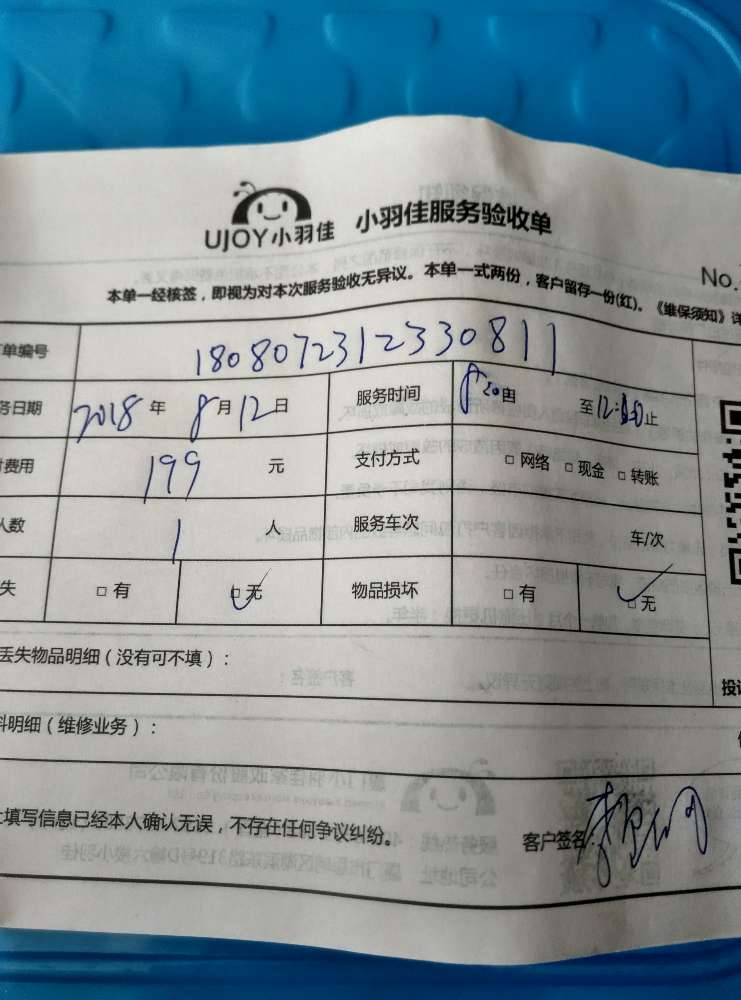 UJOY小羽佳 小羽佳服务验收单
No.
本单一经核签，即视为对本次服务验收无异议。本单一式两份，客户留存一份(红)。《维保须知》详
单编号 1808072312330811
务日期 2018 年 8 月 12 日 服务时间 8 20 由 至 12: 止
费用 199 元 支付方式 □ 网络 □ 现金 □ 转账
人数 1 人 服务车次 车/次
失 □ 有 □ 无 物品损坏 □ 有 □ 无
丢失物品明细（没有可不填）：
投
料明细（维修业务）：
填写信息已经本人确认无误，不存在任何争议纠纷。 客户签名